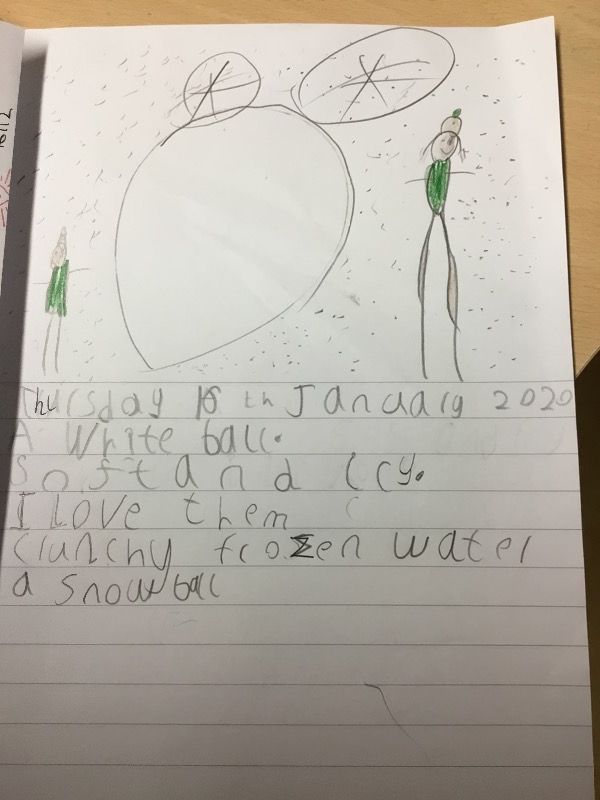 Thursday 16th January 2020
A White ball.
Soft and Icy.
I Love them
crunchy frozen water
a snowball